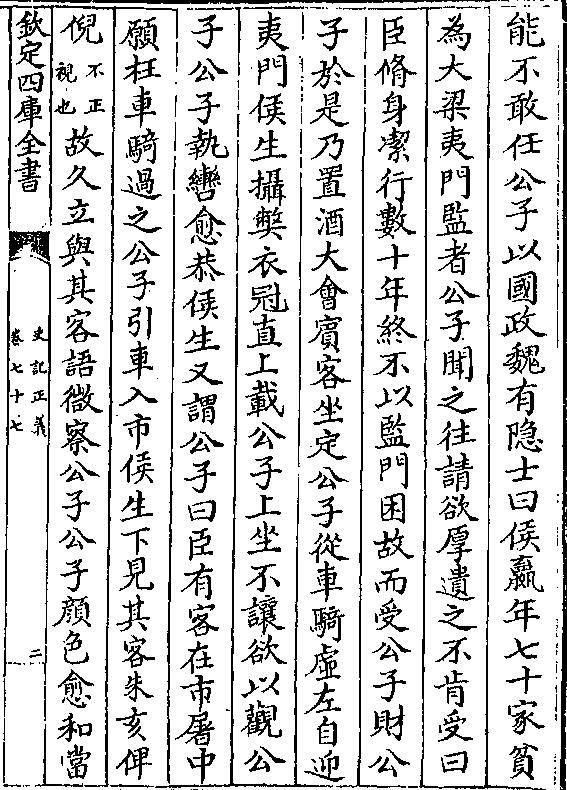 能不敢任公子以國政魏有隠士曰侯嬴年七十家貧
為大梁夷門監者公子聞之往請欲厚遺之不肯受曰
臣脩身潔行數十年終不以監門困故而受公子財公
子於是乃置酒大會賓客坐定公子從車騎虛左自迎
夷門侯生攝獘衣冠直上載公子上坐不讓欲以觀公
子公子執轡愈恭侯生又謂公子曰臣有客在市屠中
願枉車騎過之公子引車入市侯生下見其客朱亥俾
倪不正視也故久立與其客語微察公子公子顔色愈和當
欽定四庫全書
史記正義
卷七十七
二